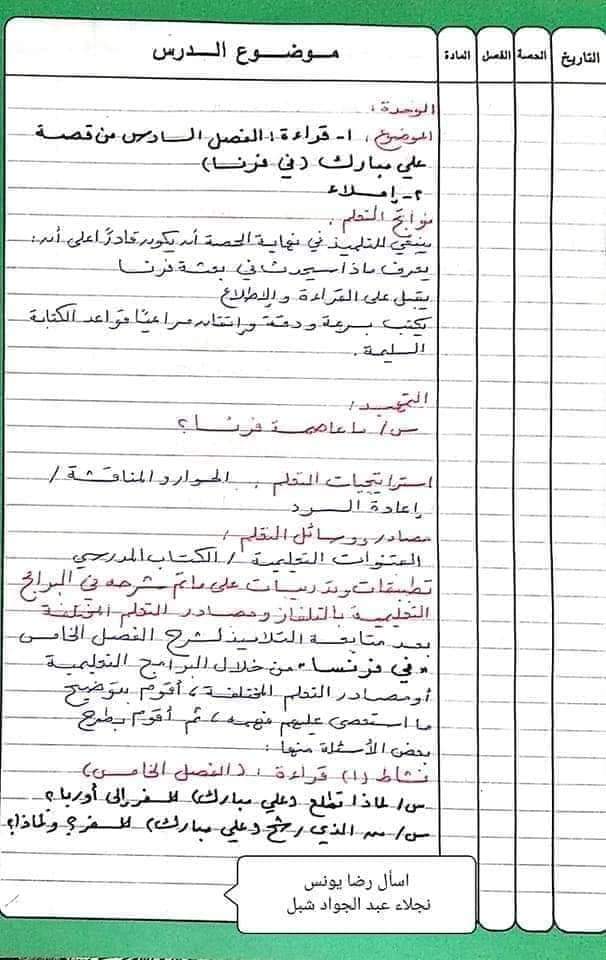 التاريخ الحصة الفصل المادة موضوع الدرس
الوحدة :
الموضوع : ١- قراءة : الفصل السادس من قصة
علي مبارك (في فرنسا)
٢- إملاء
نواتج التعلم :
ينبغي للتلميذ في نهاية الحصة أن يكون قادرًا على أن :
يعرف ماذا سيحدث في بعثة فرنسا
يقبل على القراءة والإطلاع
يكتب بسرعة ودقة وإتقان مراعيًا قواعد الكتابة
السليمة .
التمهيد :
س/ ما عاصمة فرنسا ؟
استراتيجيات التعلم : الحوار والمناقشة /
إعادة السرد
مصادر ووسائل التعلم :
القنوات التعليمية / الكتاب المدرسي
تطبيقات وتدريبات على ما تم شرحه في البرامج
التعليمية بالتلفاز ومصادر التعلم المختلفة
بعد متابعة التلاميذ لشرح الفصل الخامس
"في فرنسا" من خلال البرامج التعليمية
أو مصادر التعلم المختلفة ، أقوم بتوضيح
ما استعصى عليهم فهمه ، ثم أقوم بطرح
بعض الأسئلة منها :
نشاط (١) قراءة : (الفصل الخامس)
س/ لماذا تطلع (علي مبارك) للسفر إلى أوربا ؟
س/ من الذي رشح (علي مبارك) للسفر ؟ ولماذا ؟
اسأل رضا يونس
نجلاء عبد الجواد شبل